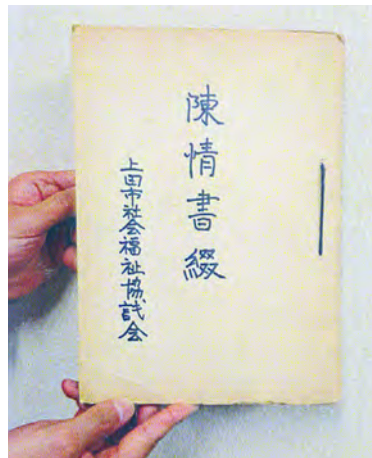 陳情書綴
上田市社会福祉協議会